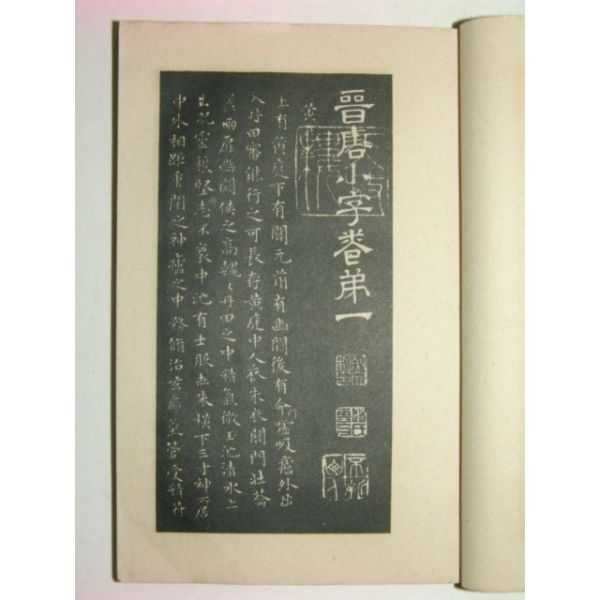 晉唐小字卷第一
黃庭
上有黃庭下有關元前有幽闕後有命
噓吸廬外出
入丹田審能行之可長存黃庭中人衣朱衣關門壯籥
幽闕俠之高巍巍丹田之中精氣微玉池清水上
生肥靈根堅志不衰中池有士服赤朱橫下三寸神所居
中外相距重閉之神廬之中務脩治玄𤸇氣管受精符